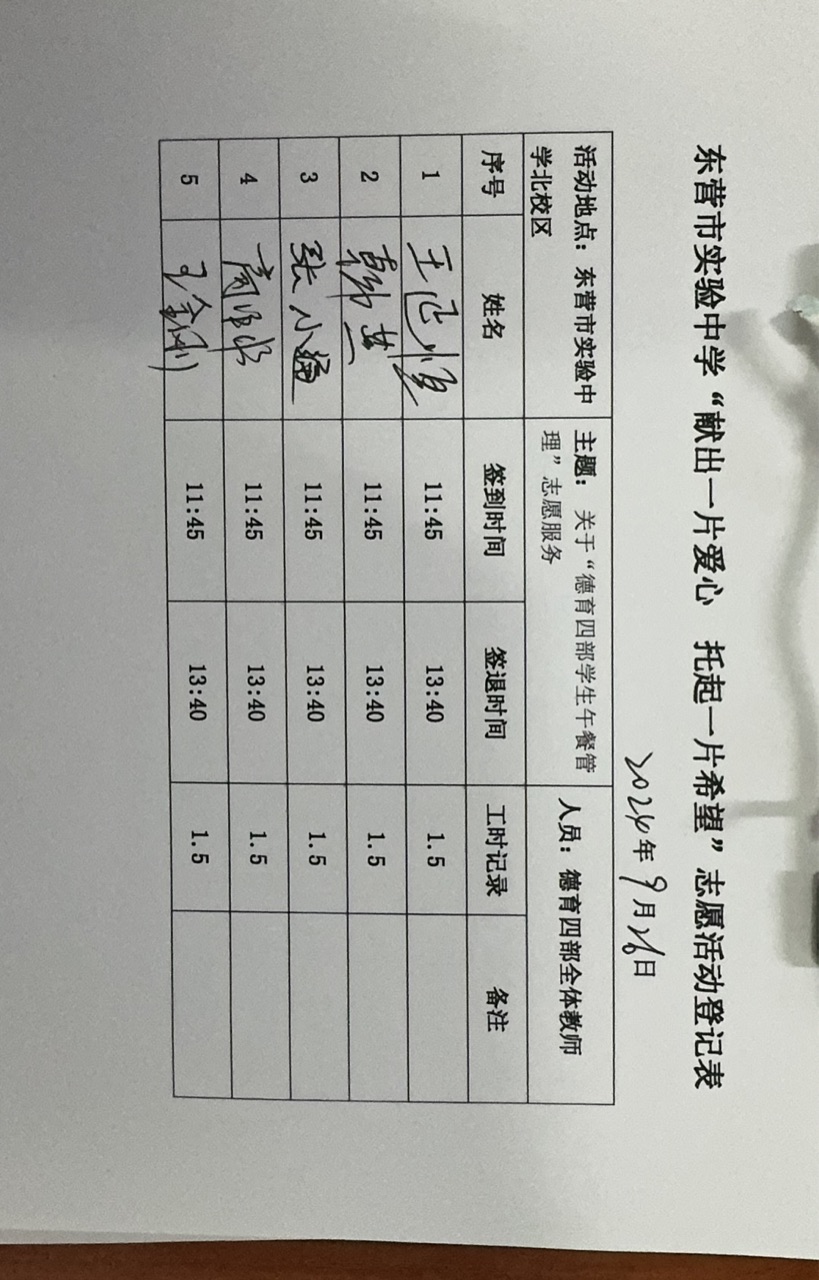 东营市实验中学“献出一片爱心 托起一片希望”志愿活动登记表
2024年9月26日
活动地点：东营市实验中学北校区 主题：关于“德育四部学生午餐管理”志愿服务 人员：德育四部全体教师
序号 姓名 签到时间 签退时间 工时记录 备注
1 11:45 13:40 1.5
2 韩燕 11:45 13:40 1.5
3 张小通 11:45 13:40 1.5
4 11:45 13:40 1.5
5 王金刚 11:45 13:40 1.5